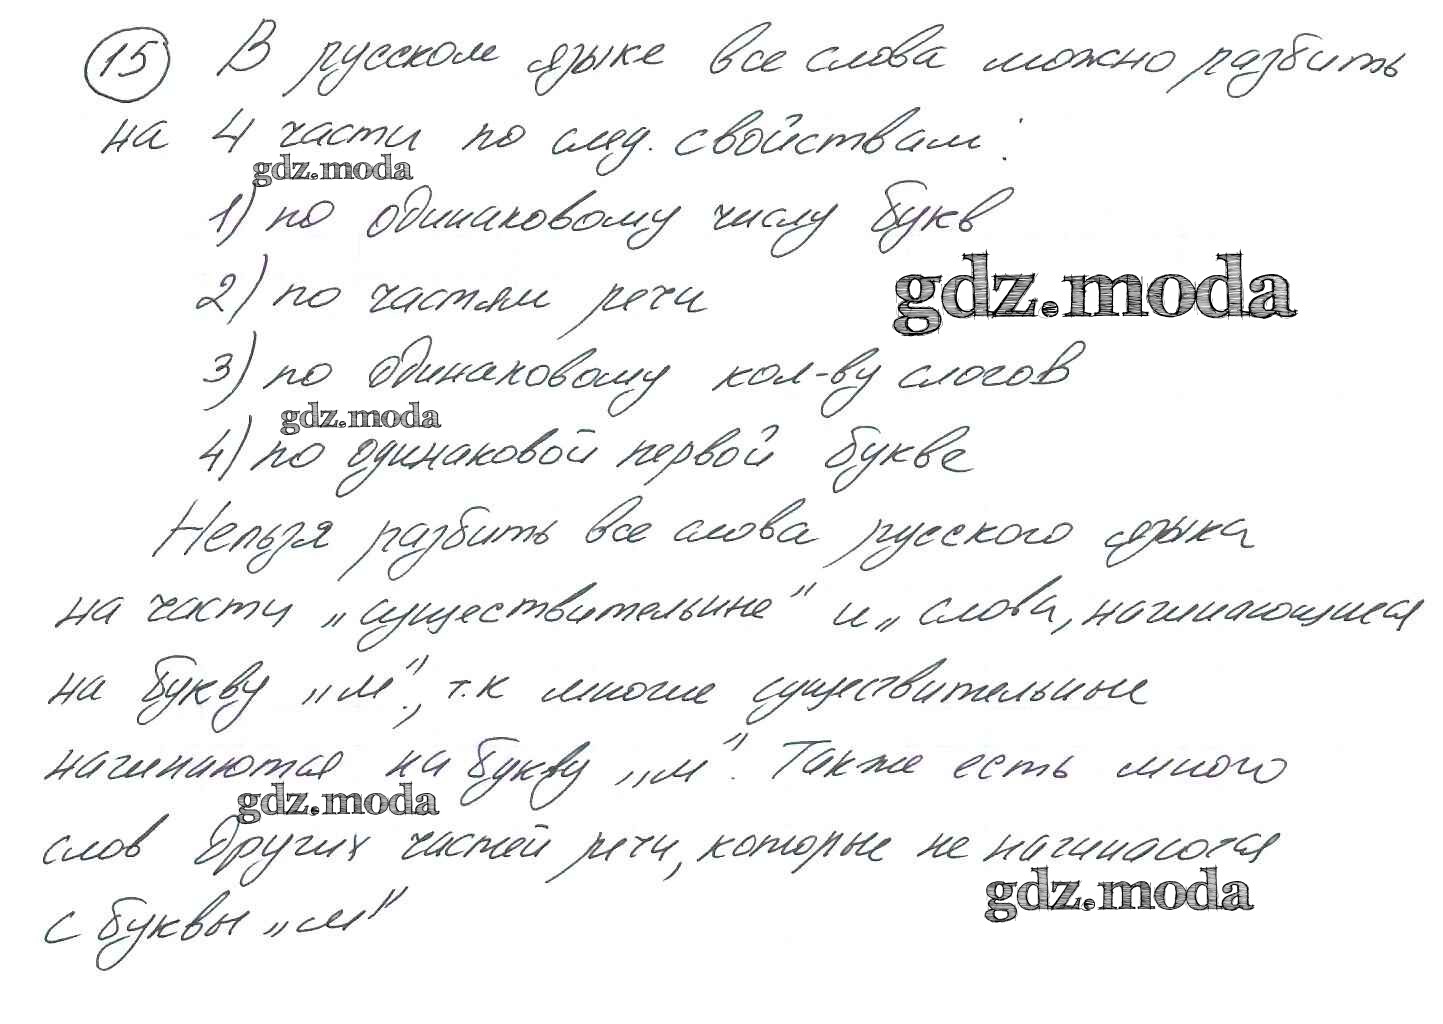 15 В русском языке все слова можно разбить
на 4 части по след. свойствам:
gdz.moda
1) по одинаковому числу букв
2) по частям речи
gdz.moda
3) по одинаковому кол-ву слогов
gdz.moda
4) по одинаковой первой букве
Нельзя разбить все слова русского языка
на части „существительные" и „слова, начинающиеся
на букву „м"., т.к многие существительные
начинаются на букву „м". Также есть много
gdz.moda
слов других частей речи, которые не начинаются
gdz.moda
с буквы „м"